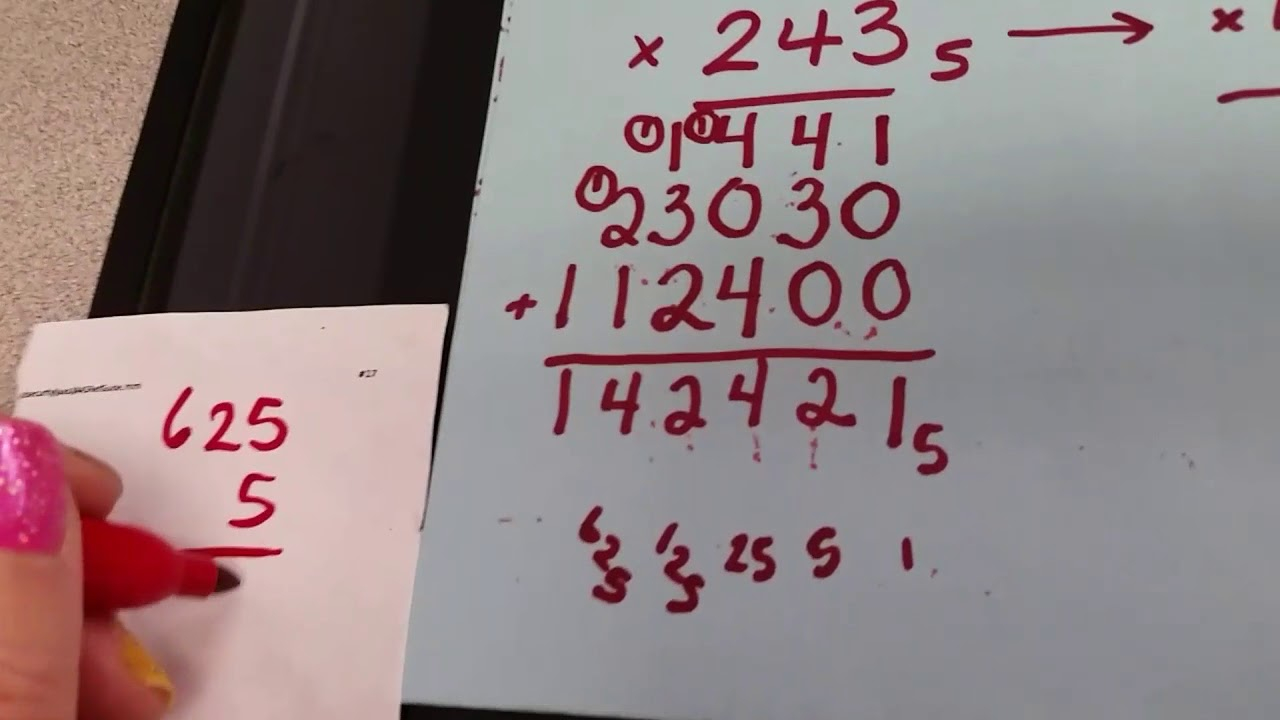 × 243 5 → ×
1 1 1 4 4 1
1 23030
+ 112400
142421 5
625 125 25 5 1
#17
625
5